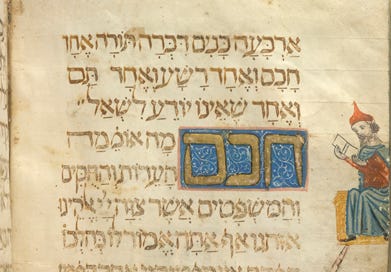 ארבעה בנים דברה תורה אחד
חכם ואחד רשע ואחד תם
ואחד שאינו יודע לשאל״
חכם מה אומ מה
העדות והחקים
והמשפטים אשר צוה
אותנו ואף אתה אמור לו